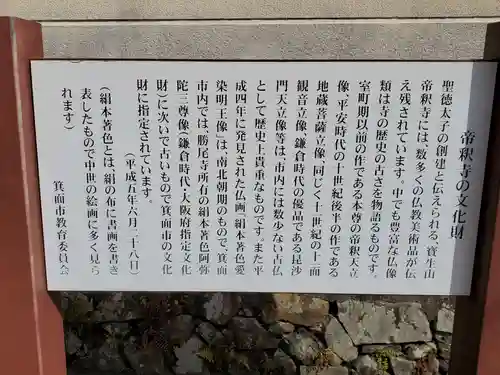 帝釈寺の文化財
聖徳太子の創建と伝えられる、寶生山
帝釈寺には、数多くの仏教美術品が伝
え残されています。中でも豊富な仏像
類は寺の歴史の古さを物語るものです。
室町期以前の作である本尊の帝釈天立
像、平安時代の十世紀後半の作である
地蔵菩薩立像、同じく十一世紀の十一面
観音立像、鎌倉時代の優品である毘沙
門天立像等は、市内には数少ない古仏
として歴史上貴重なものです。また平
成四年に発見された仏画「絹本著色愛
染明王像」は、南北朝期のもので、箕面
市内では、勝尾寺所有の絹本著色阿弥
陀三尊像(鎌倉時代・大阪府指定文化
財)に次いで古いもので箕面市の文化
財に指定されています。
(平成五年六月二十八日)
(絹本著色とは絹の布に書画を書き
表したもので中世の絵画に多く見ら
れます)
箕面市教育委員会